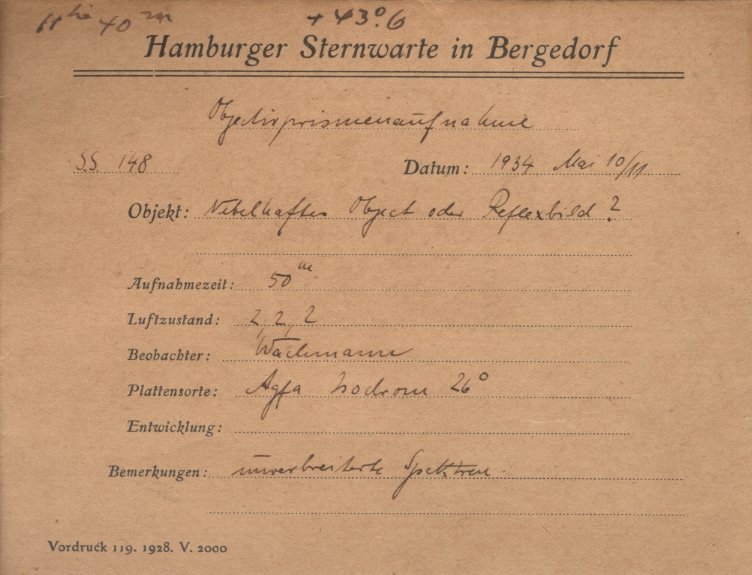 11h 40m +43°.6
Hamburger Sternwarte in Bergedorf
Objectivprismenaufnahme
SS. 148 Datum: 1934 Mai 10/11
Objekt: Nebelhaftes Object oder Reflexbild?
Aufnahmezeit: 50m
Luftzustand: 2, 2, 2
Beobachter: Wachmann
Plattensorte: Agfa Isochrom 26°
Entwicklung:
Bemerkungen: unverbreiterte Spektren.
Vordruck 119. 1928. V. 2000